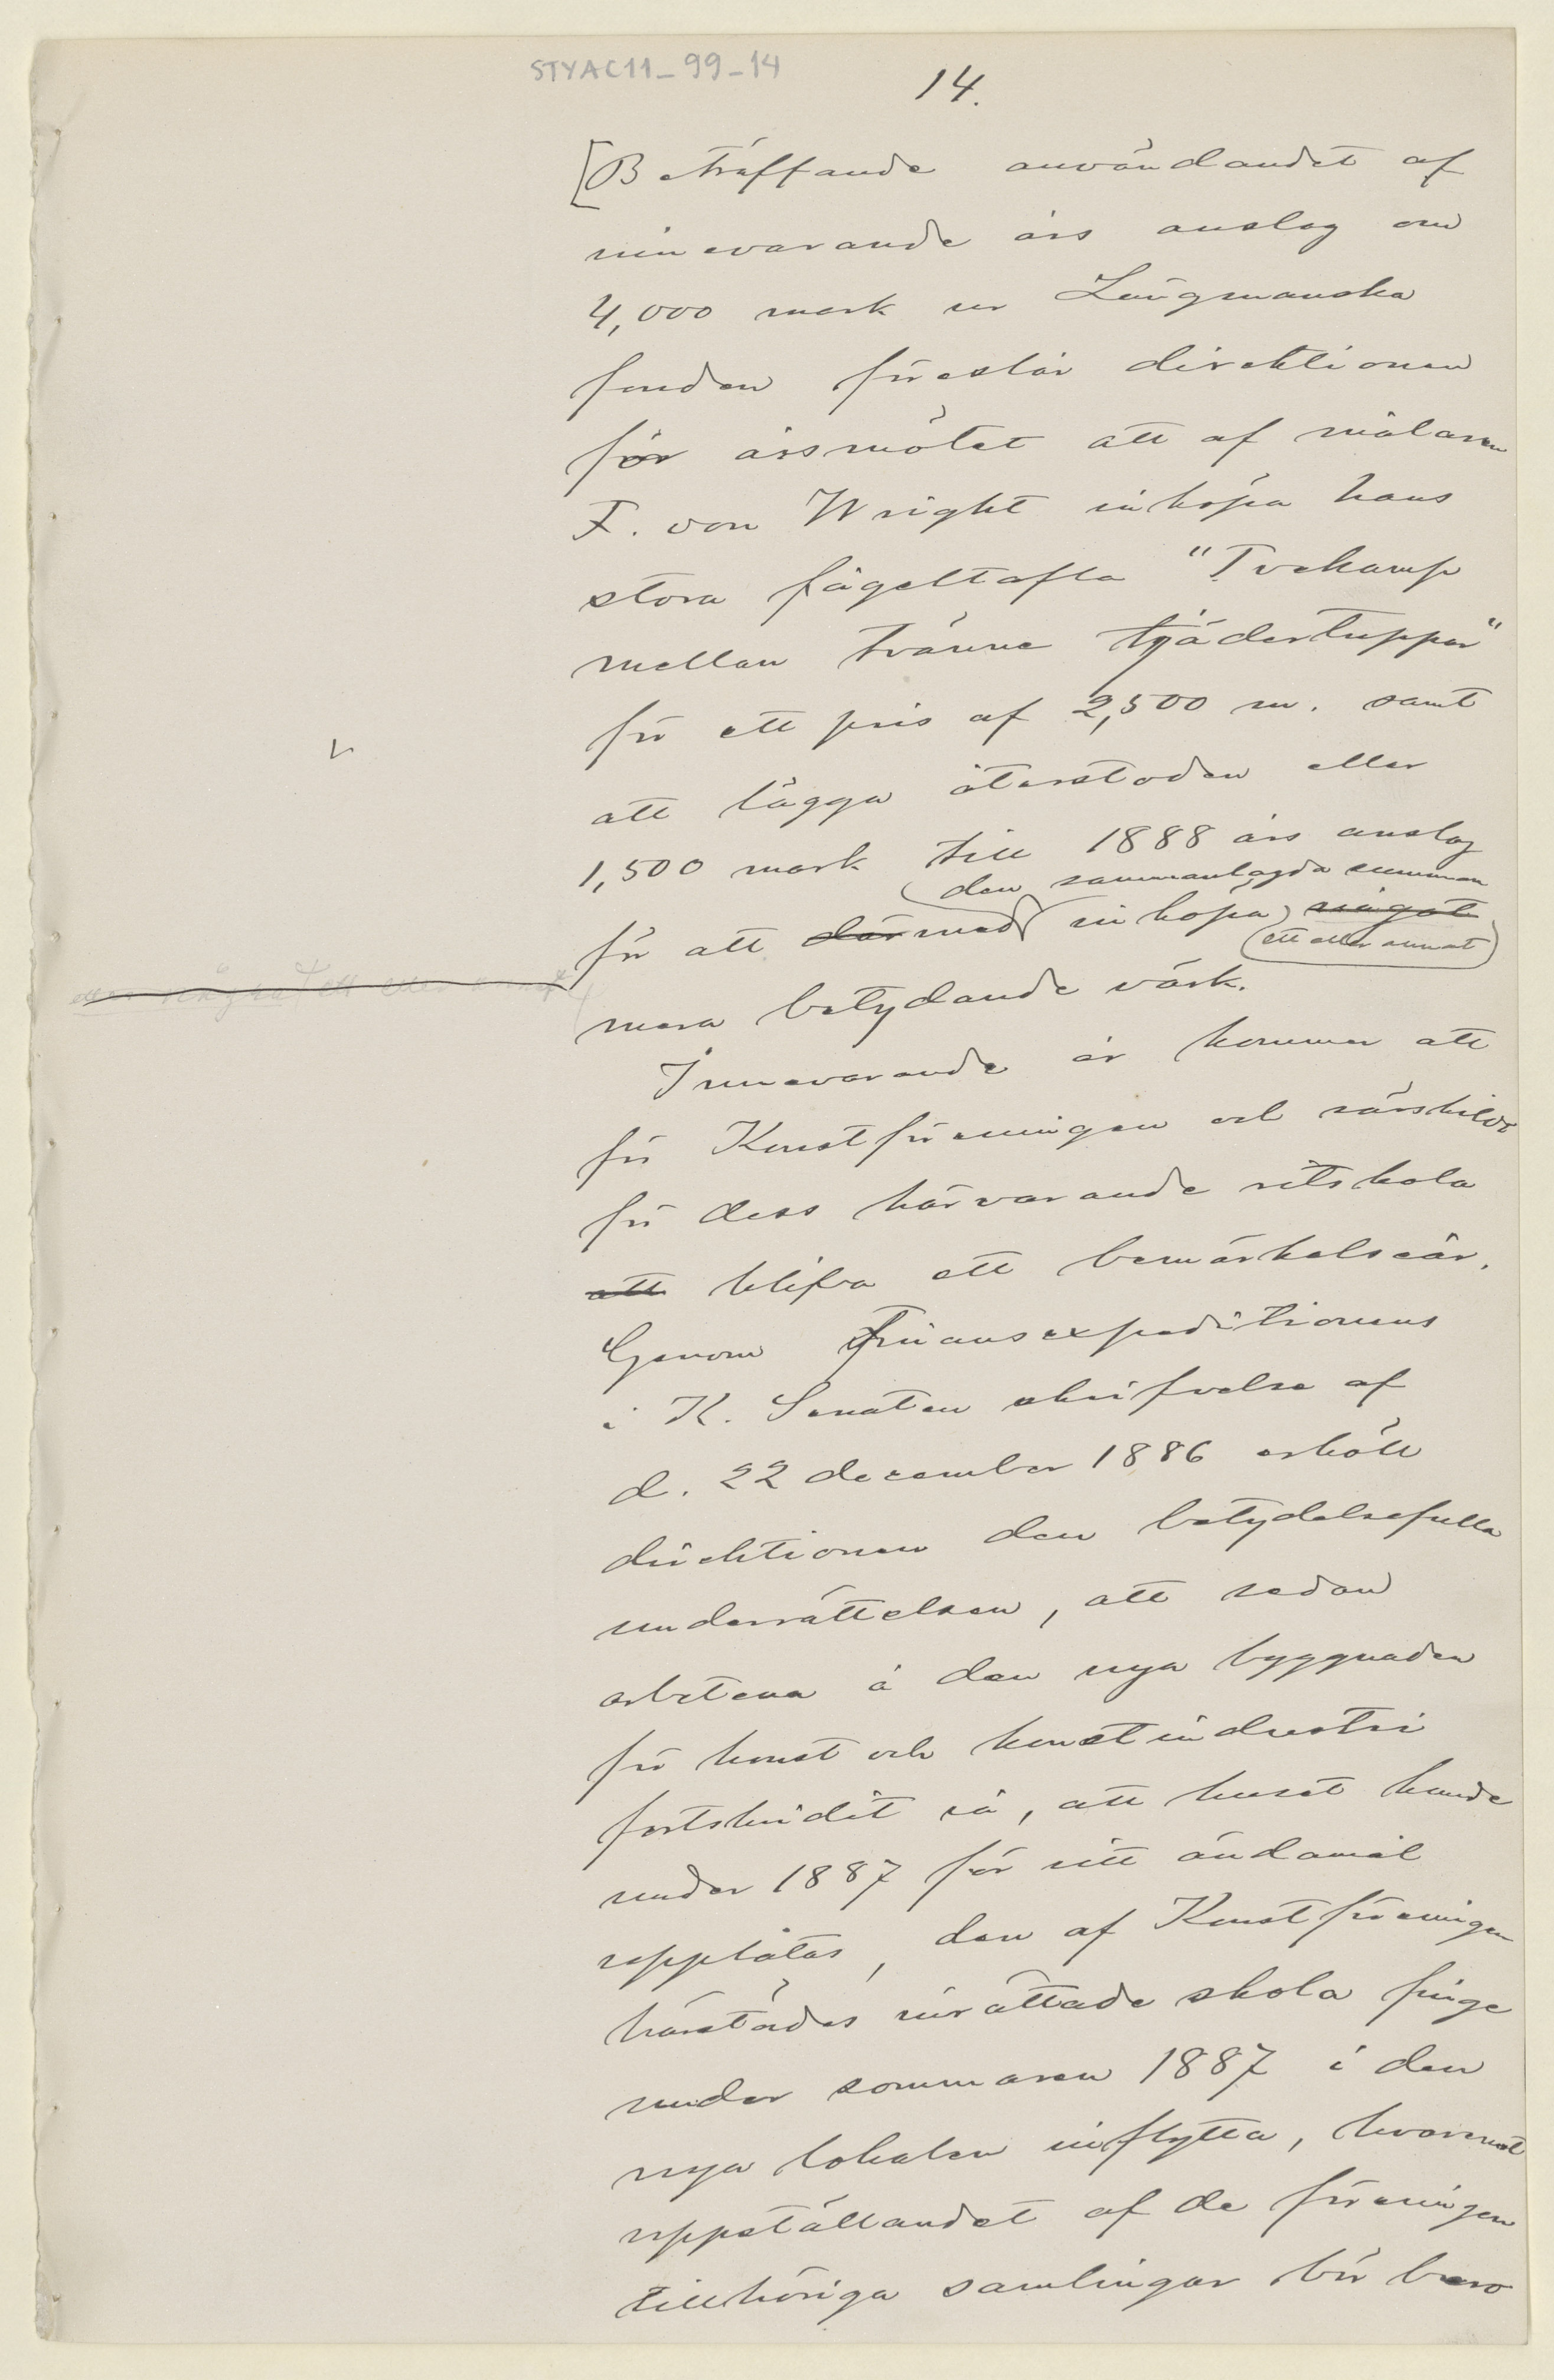 STYAC11_99_14
14.
[Beträffande användandet af
innevarande års anslag om
4,000 mark ur Längmanska
fonden föreslår direktionen
för årsmötet att af målaren
F. von Wright inköpa hans
stora fågeltafla "Tvekamp
mellan tvänne tjädertuppar"
för ett pris af 2,500 m. samt
att lägga återstoden eller
1,500 mark till 1888 års anslag
den sammanlagda summan
för att därmed inköpa något
ett eller annat
mera betydande värk.
Innevarande år kommer att
för Konstföreningen och särskildt
för dess härvarande ritskola
att blifva ett bemärkelseår.
Genom Finansexpeditionens
i K. Senaten skrifvelse af
d. 22 december 1886 erhöll
direktionen den betydelsefulla
underrättelsen, att sedan
arbetena å den nya byggnaden
för konst och konstindustri
fortskridit så, att huset kunde
under 1887 för sitt ändamål
upplåtas, den af Konstföreningen
härstädes inrättade skola finge
under sommaren 1887 i den
nya lokalen inflytta, hvaremot
uppställandet af de föreningen
tillhöriga samlingar bör bero